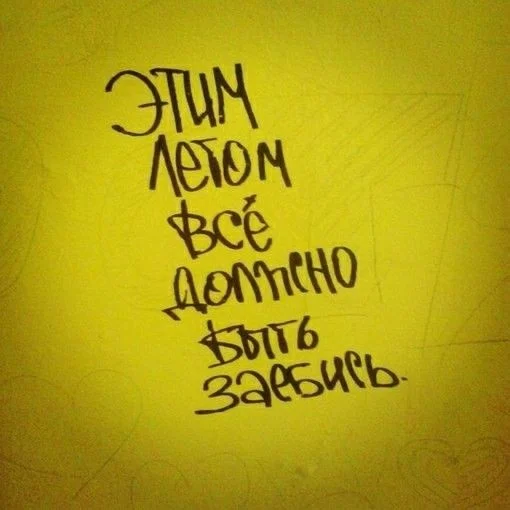 Этим
летом
всё
должно
быть
заебись.